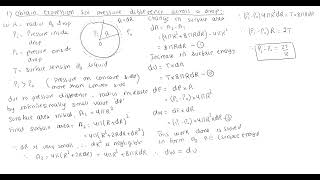 1) Obtain Expression for pressure difference across a drop:
R = radius of drop
Pi = Pressure inside drop
Po = pressure outside drop
T = Surface tension of liquid
R+dR
Pi
R
O
Pi > Po (Pressure on concave side more than convex side)
due to pressure difference, radius increases by infinitesimally small value 'dR'
Initial surface area, A1 = 4πR²
Final surface area, A2 = 4π(R+dR)²
= 4π(R²+2RdR+dR²)
∵ dR is very small, ∴ dR² is negligible
∴ A2 = 4π(R²+2RdR) = 4πR²+8πRdR
Change in surface area
dA = A2-A1
= 4πR²+8πRdR-4πR²
= 8πRdR - ①
Increase in surface energy
T×8πRdR - ②
dw = dF×dR
dF = dP×A
= (Pi-Po)×4πR²
∴ dw = (Pi-Po)4πR²dR
This work done is stored in form of P.E (surface energy)
∴ dw = du
∴ (Pi-Po)4πR²dR = T×8πRdR
∴ (Pi-Po)R = 2T
∴ Pi-Po = 2T/R